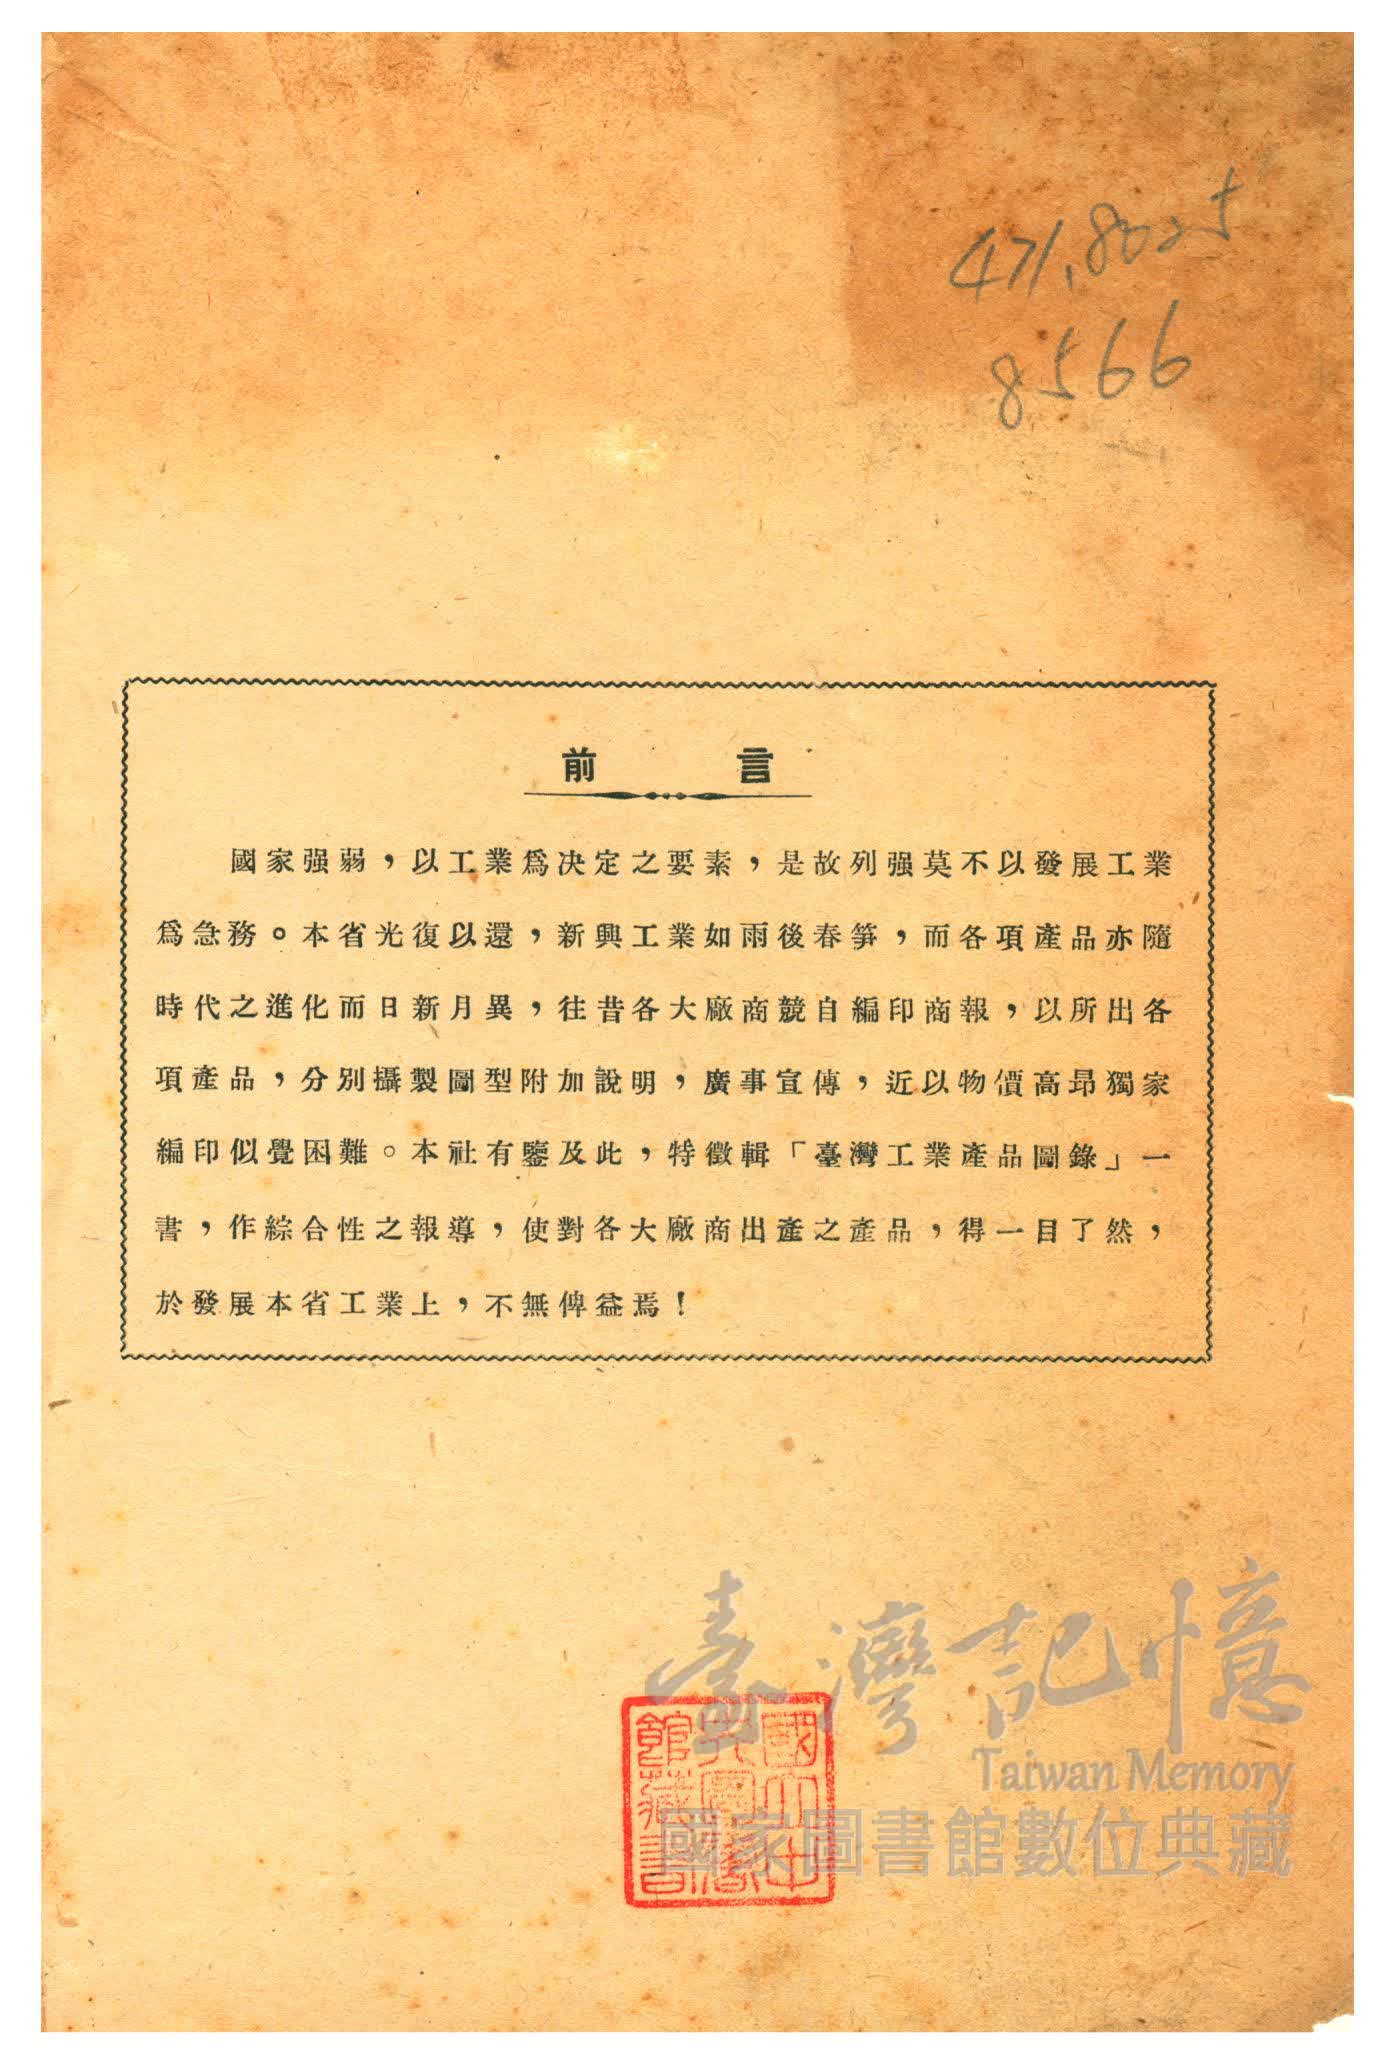 471.8025
8566
前言
國家强弱，以工業爲決定之要素，是故列强莫不以發展工業
爲急務。本省光復以還，新興工業如雨後春筍，而各項產品亦隨
時代之進化而日新月異，往昔各大廠商競自編印商報，以所出各
項產品，分別攝製圖型附加說明，廣事宣傳，近以物價高昂獨家
編印似覺困難。本社有鑒及此，特徵輯「臺灣工業產品圖錄」一
書，作綜合性之報導，使對各大廠商出產之產品，得一目了然，
於發展本省工業上，不無俾益焉！
臺灣記憶
Taiwan Memory
國家圖書館數位典藏
國立中
央圖書
館藏書